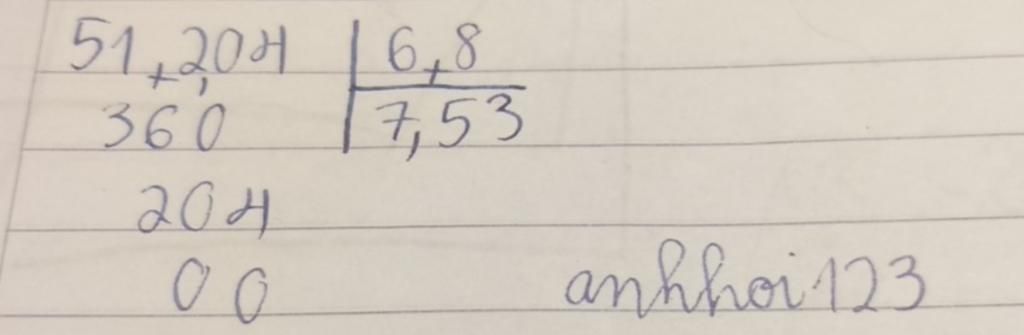 51,204 | 6,8
360 | 7,53
204
00 anhhoi123